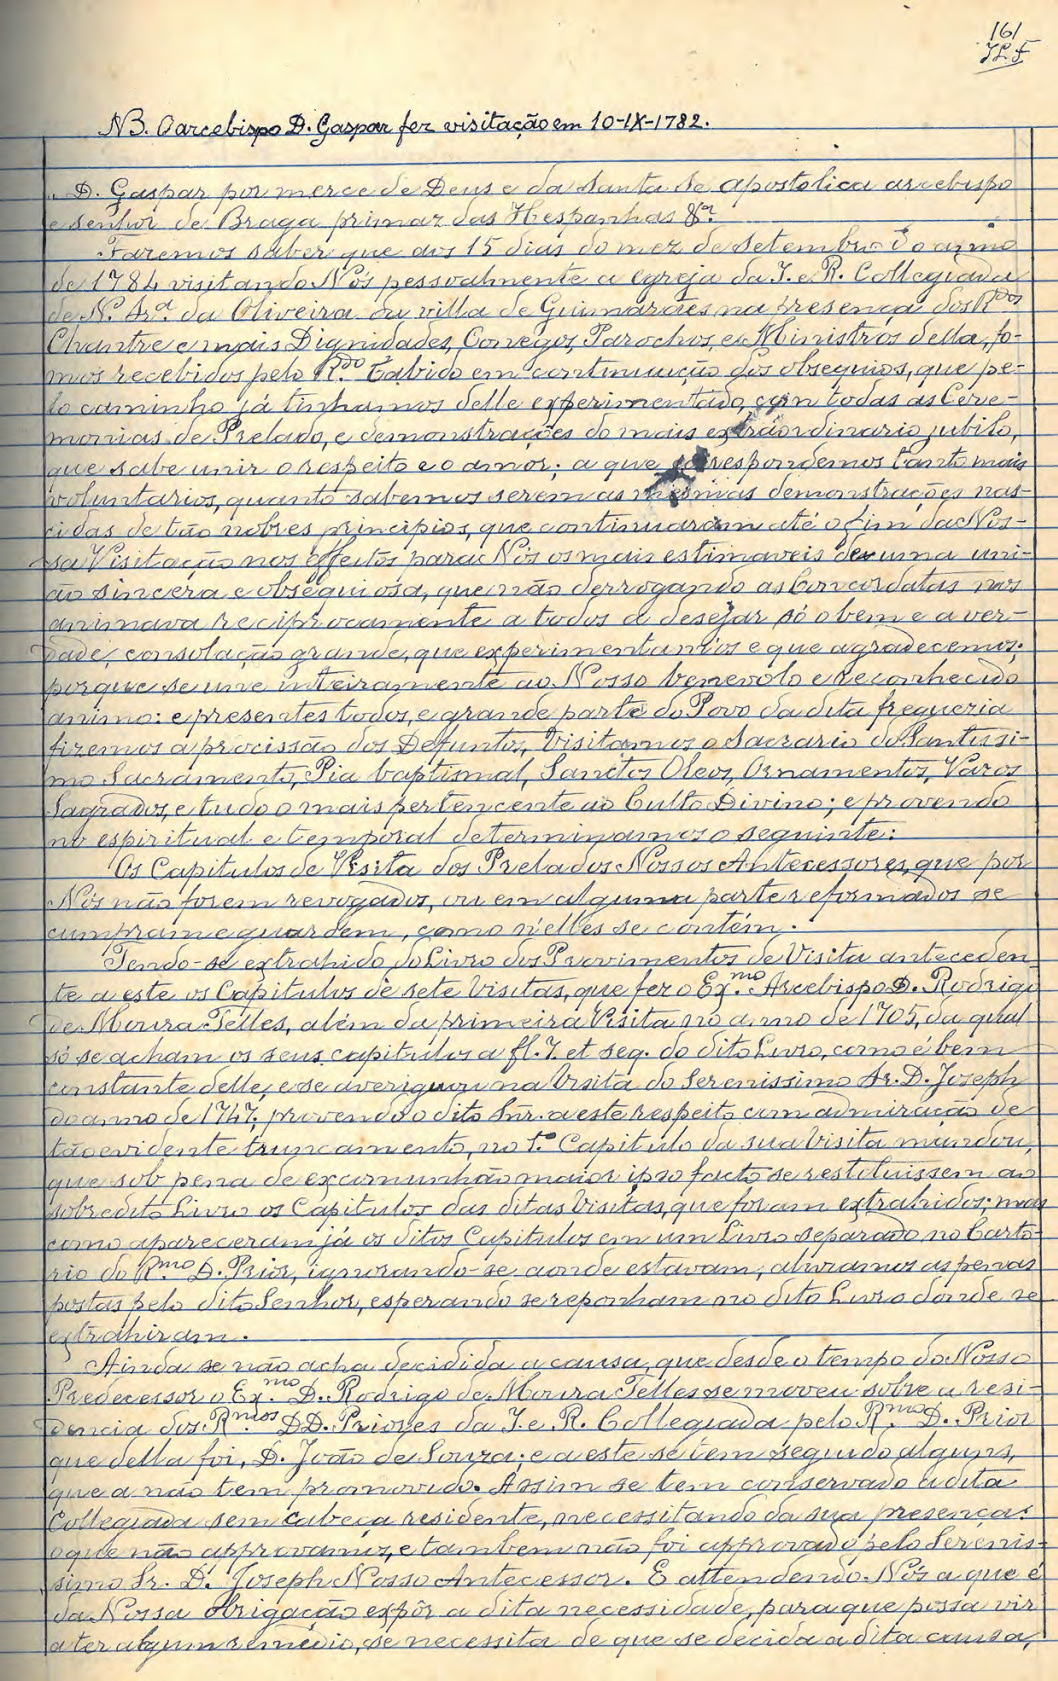 161
J.L.F.
NB. O arcebispo D. Gaspar fez visitação em 10-IX-1782.
D. Gaspar por merce de Deus e da santa se apostolica arcebispo
e senhor de Braga primaz das Hespanhas &ª.
Fazemos saber que aos 15 dias do mez de setembro do anno
de 1784 visitando Nós pessoalmente a egreja da I. e R. Collegiada
de N. Srª. da Oliveira da villa de Guimarães na presença dos Rdos
Chantre e mais Dignidades, Conegos, Parochos, e Ministros della, fo-
mos recebidos pelo R.do Cabido em continuação dos obsequios, que pe-
lo caminho já tinhamos delle experimentado, com todas as Cere-
monias de Prelado, e demonstrações do mais extraordinario jubilo,
que sabe unir o respeito e o amor; a que correspondemos tanto mais
voluntarios, quanto sabemos serem as mesmas demonstrações nas-
cidas de tão nobres principios, que continuaram até o fim da Nos-
sa Visitação nos effeitos para Nós os mais estimaveis de uma uni-
ão sincera e obsequiosa, que não derrogando as Concordatas nos
animava reciprocamente a todos a desejar só o bem e a ver-
dade, consolação grande, que experimentamos e que agradecemos;
porque se une inteiramente ao Nosso benevolo e reconhecido
animo: e presentes todos, e grande parte do Povo da dita freguezia
fizemos a procissão dos Defuntos, Visitamos o Sacrario do Santissi-
mo Sacramento, Pia baptismal, Sanctos Oleos, Ornamentos, Vazos
Sagrados, e tudo o mais pertencente ao Culto Divino; e provendo
no espiritual e temporal determinamos o seguinte:
Os Capitulos de Visita dos Prelados Nossos Antecessores, que por
Nós não forem revogados, ou em alguma parte reformados se
cumpram e guardem, como n'elles se contém.
Tendo-se extrahido do Livro dos Provimentos de Visita anteceden-
te a este os Capitulos de sete Visitas, que fez o Ex.mo Arcebispo D. Rodrigo
de Moura Telles, além da primeira Visita no anno de 1705, da qual
só se acham os seus capitulos a fl. 7. et seq. do dito Livro, como é bem
constante delle, e se averiguou na Visita do Serenissimo Sr. D. Joseph
do anno de 1747, provendo o dito Snr. a este respeito com admiração de
tão evidente truncamento, no 1º Capitulo da sua Visita mandou,
que sob pena de excomunhão maior ipso facto se restituissem ao
sobredito Livro os Capitulos das ditas Visitas, que foram extrahidos; mas
como apareceram já os ditos Capitulos em um Livro separado no Carto-
rio do R.mo D. Prior, ignorando-se aonde estavam, alviamos as penas
postas pelo dito Senhor, esperando se reponham no dito Livro donde se
extrahiram.
Ainda se não acha decidida a causa, que desde o tempo do Nosso
Predecessor o Ex.mo D. Rodrigo de Moura Telles se moveu sobre a resi-
dencia dos R.mos DD. Priores da I. e R. Collegiada pelo R.mo D. Prior
que della foi, D. João de Souza; e a este se tem seguido alguns,
que a não tem promovido. Assim se tem conservado a dita
Collegiada sem cabeça residente, necessitando da sua presença:
o que não approvamos, e tambem não foi approvado pelo Serenis-
simo Sr. D. Joseph Nosso Antecessor. E attendendo Nós a que é
da Nossa obrigação expôr a dita necessidade, para que possa vir
a ter algum remedio, se necessita de que se decida a dita causa,